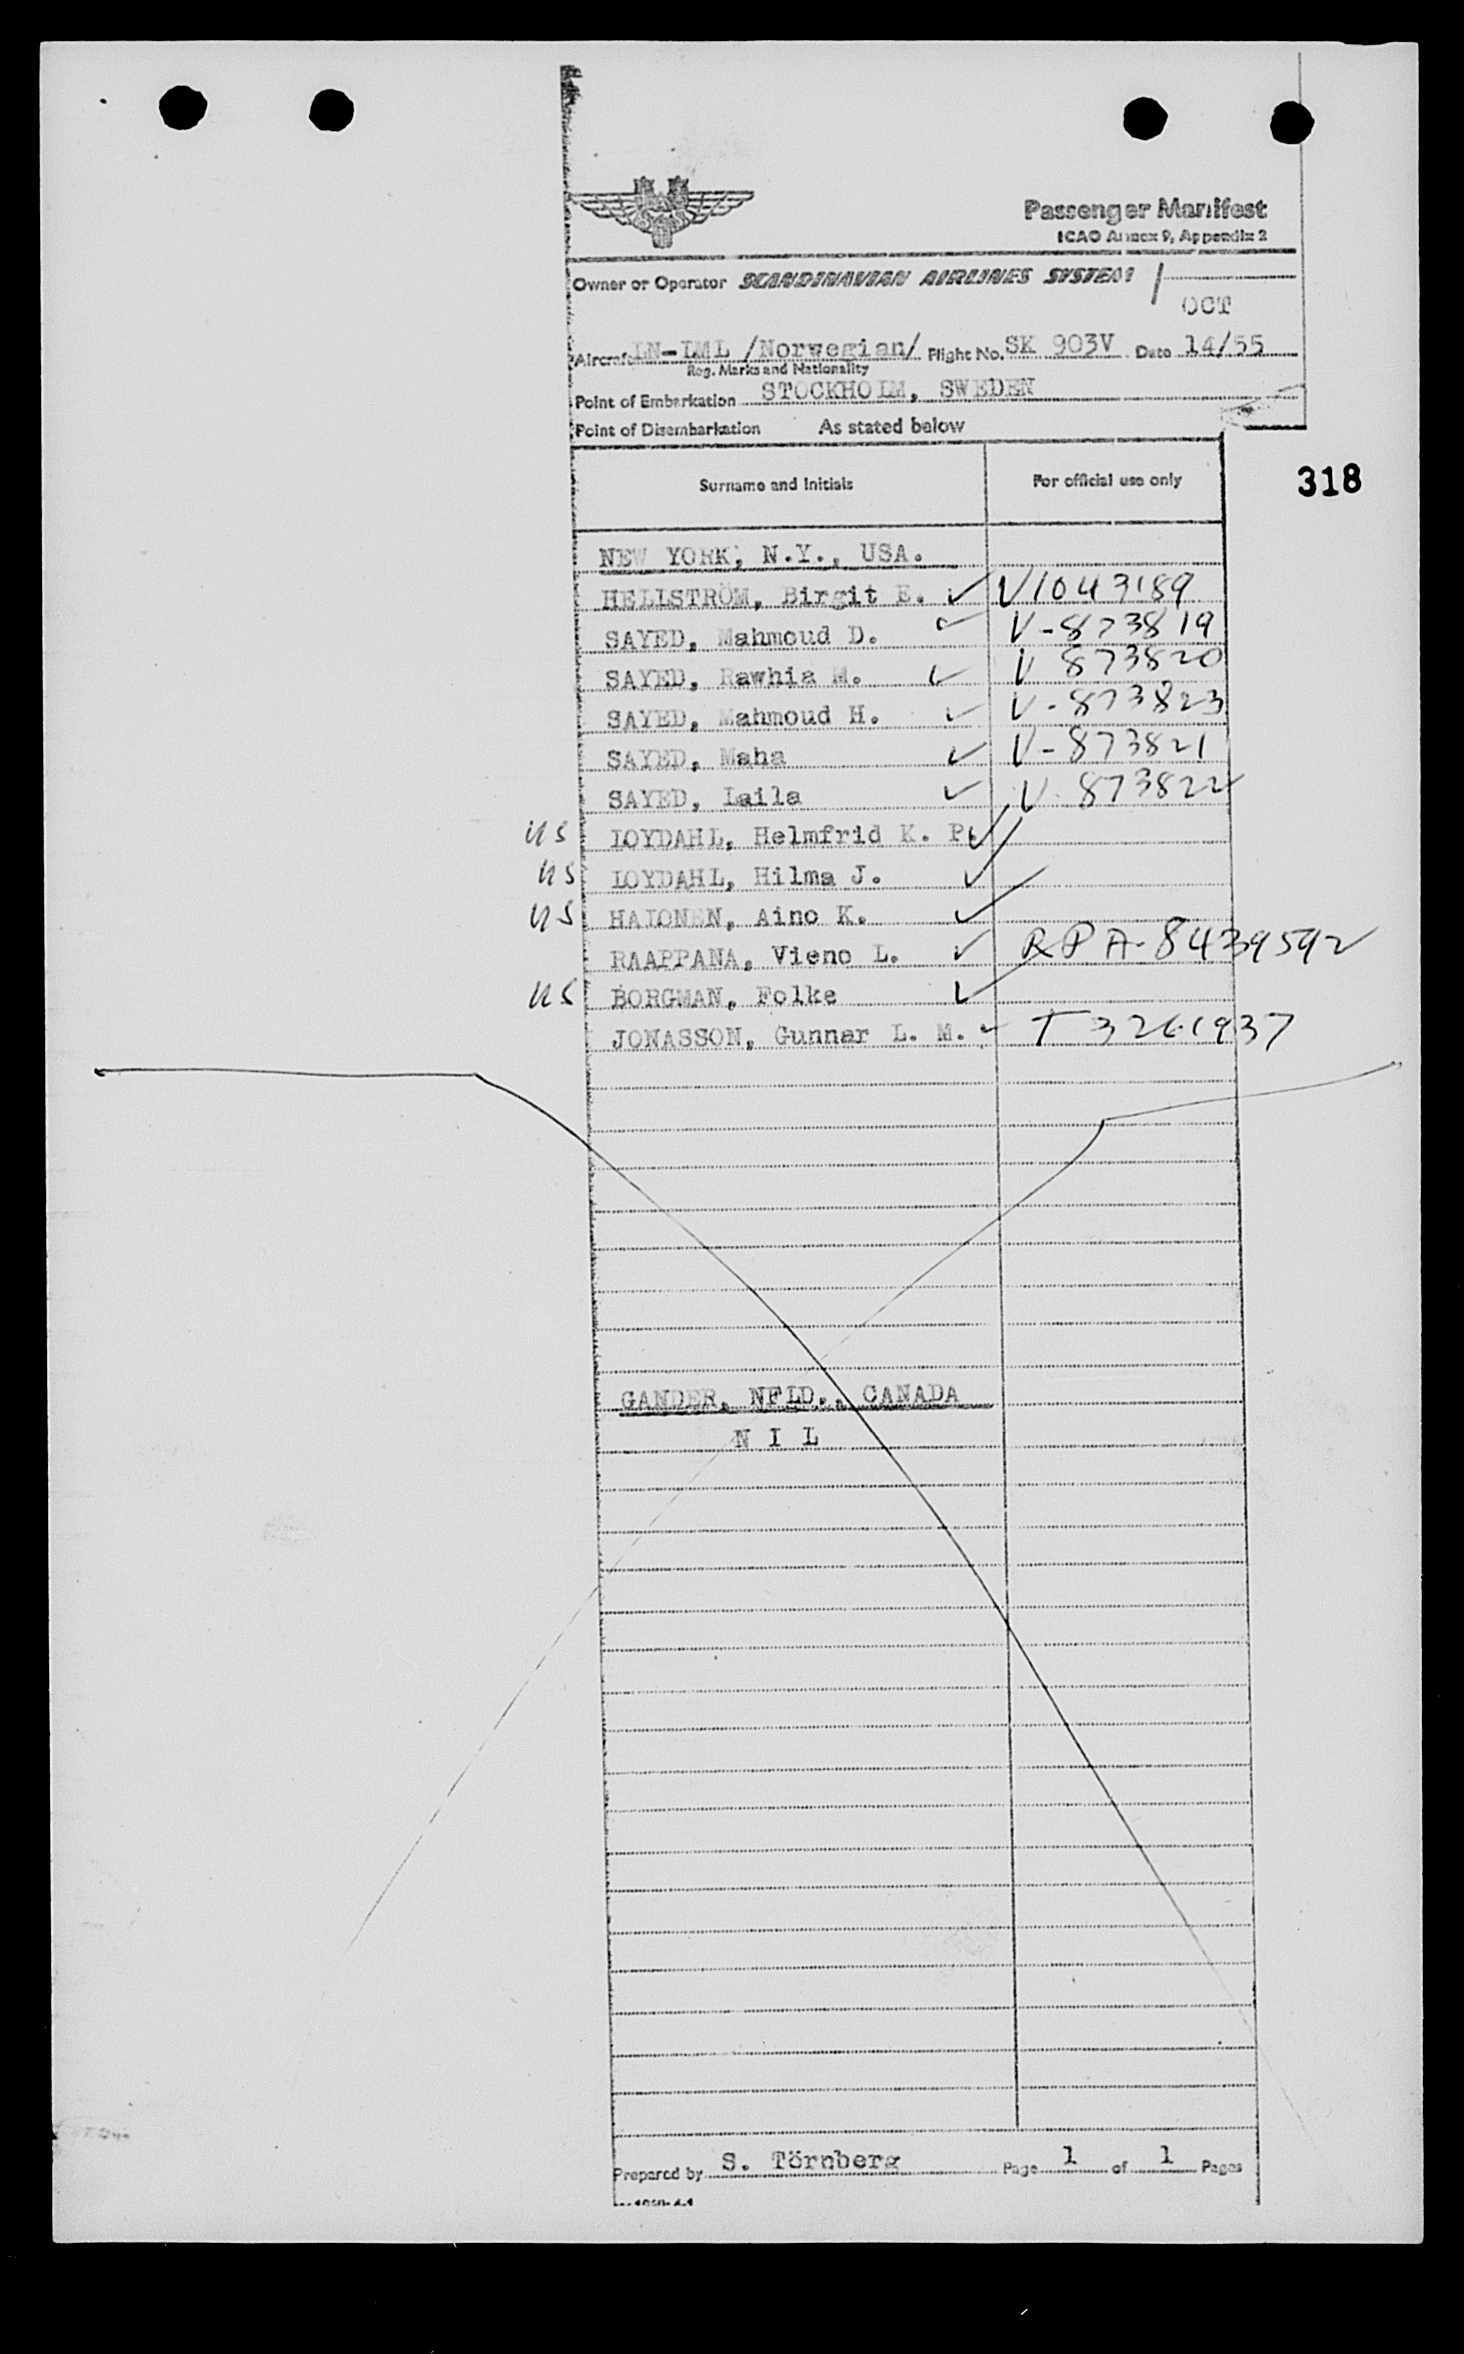 Passenger Manifest
ICAO Annex 9, Appendix 2
Owner or Operator SCANDINAVIAN AIRLINES SYSTEM
OCT
Aircraft LN-LML /Norwegian/ Flight No. SK 903V Date 14/55
Reg. Marks and Nationality
Point of Embarkation STOCKHOLM, SWEDEN
Point of Disembarkation As stated below
Surname and Initials For official use only
318
NEW YORK, N.Y., USA.
HELLSTRÖM, Birgit E. ✓ V1043189
SAYED, Mahmoud D. ✓ V-873819
SAYED, Rawhia M. ✓ V 873820
SAYED, Mahmoud H. ✓ V-873823
SAYED, Maha ✓ V-873821
SAYED, Laila ✓ V 873822
US LOYDAHL, Helmfrid K. P. ✓
US LOYDAHL, Hilma J. ✓
US HALONEN, Aino K. ✓
RAAPPANA, Vieno L. ✓ RP A-8439592
US BORGMAN, Folke ✓
JONASSON, Gunnar L. M. ✓ T 3261937
GANDER, NFLD., CANADA
N I L
Prepared by S. Törnberg Page 1 of 1 Pages